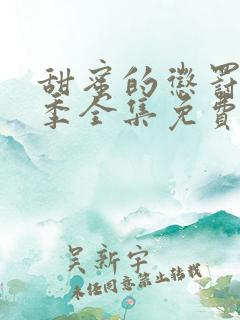 甜蜜的惩罚
季全集免费
吴新宇
未经同意禁止转载